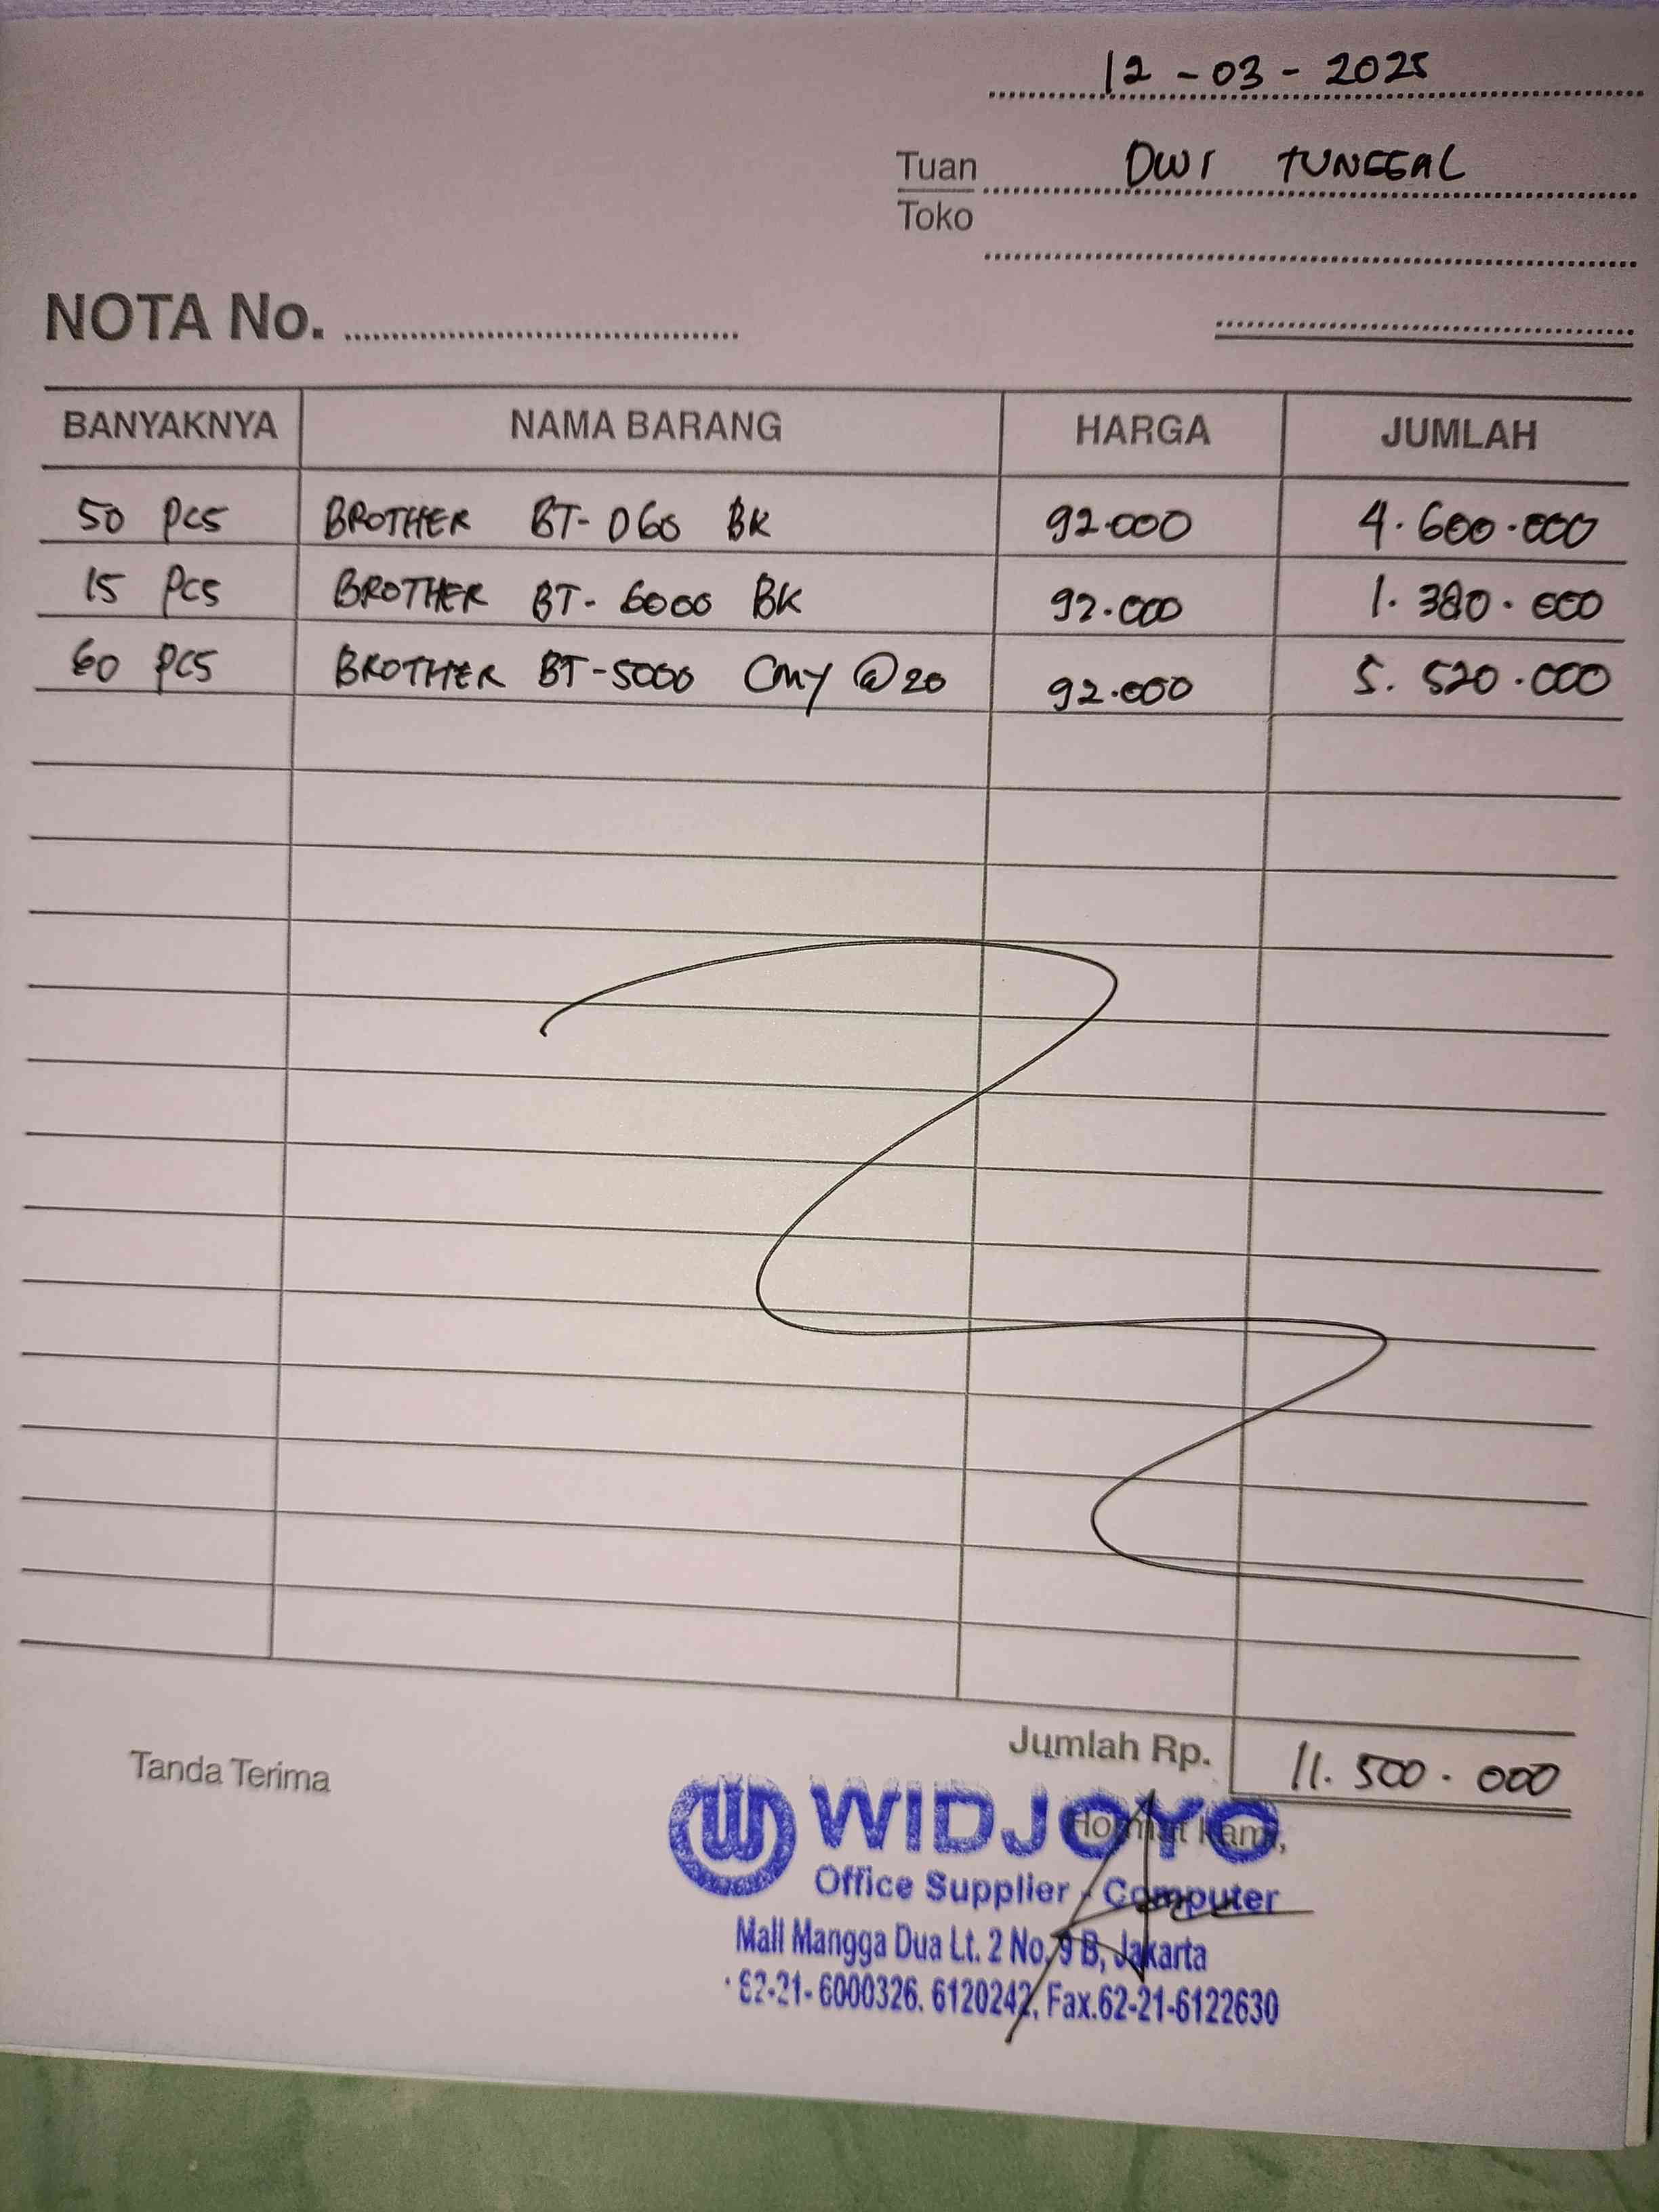 12 - 03 - 2025
Tuan DWI TUNGGAL
Toko
NOTA No.
BANYAKNYA NAMA BARANG HARGA JUMLAH
50 PCS BROTHER BT-D60 BK 92.000 4.600.000
15 PCS BROTHER BT-6000 BK 92.000 1.380.000
60 PCS BROTHER BT-5000 CMY @20 92.000 5.520.000
Jumlah Rp. 11.500.000
Tanda Terima
Hormat Kami,
WIDJOYO
Office Supplier - Computer
Mall Mangga Dua Lt. 2 No. 9 B, Jakarta
62-21-6000326. 6120242, Fax.62-21-6122630